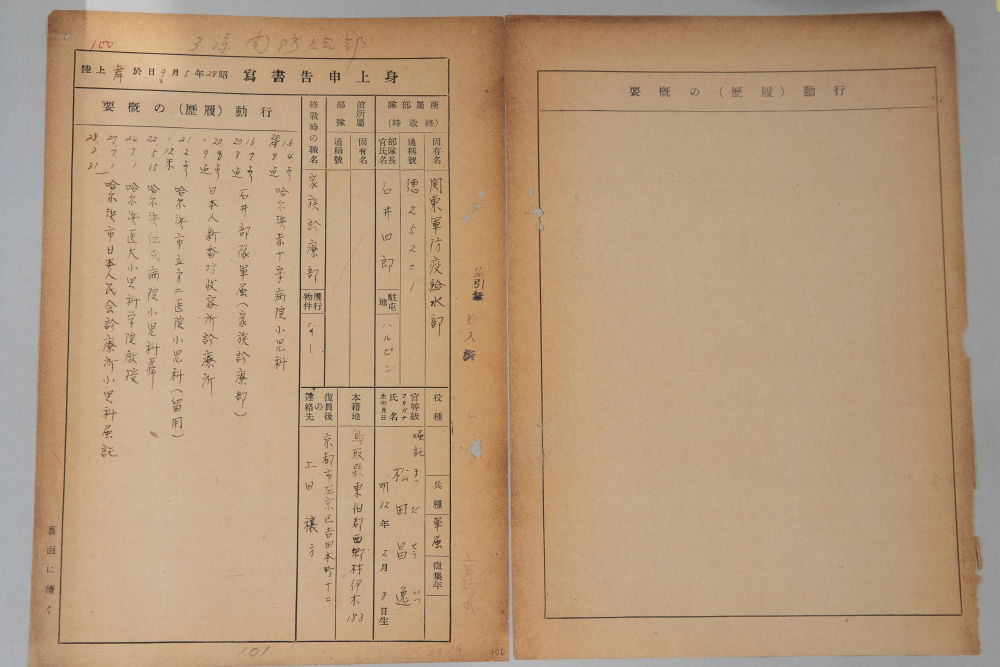 100
身上申告書寫
昭28年5月9日於 舞 上陸
所屬部隊(終戰時)
固有名
関東軍防疫給水部
通稱號
徳25201
部隊長官氏名
石井四郎
駐屯地
ハルピン
前所屬部隊
固有名
通稱號
終戰時の職名
家族診療部
携行物件
なし
役種
兵種
軍属
徴集年
官等級
嘱託
フリガナ
まつ だ せう いつ
氏名
松田昌逸
生年月日
明32年2月8日生
本籍地
鳥取縣東伯郡西郷村伊木183
復員後の連絡先
京都市左京区吉田本町十二
上田穰方
行動(履歴)の概要
16 4 哈尔浜赤十字病院小児科
16 7
20 8 石井部隊軍属(家族診療部)
20 8
9 日本人新香坊收容所診療所
21 2
12末 哈尔浜市立第二医院小児科(留用)
22 5 15 哈尔浜仁成病院小児科
24 7 1 哈尔浜医大小児科学院教授
27 7 1
28 3 31 哈尔浜市日本人民会診療所小児科属託
裏面に續く
101
106
行動(履歴)の概要